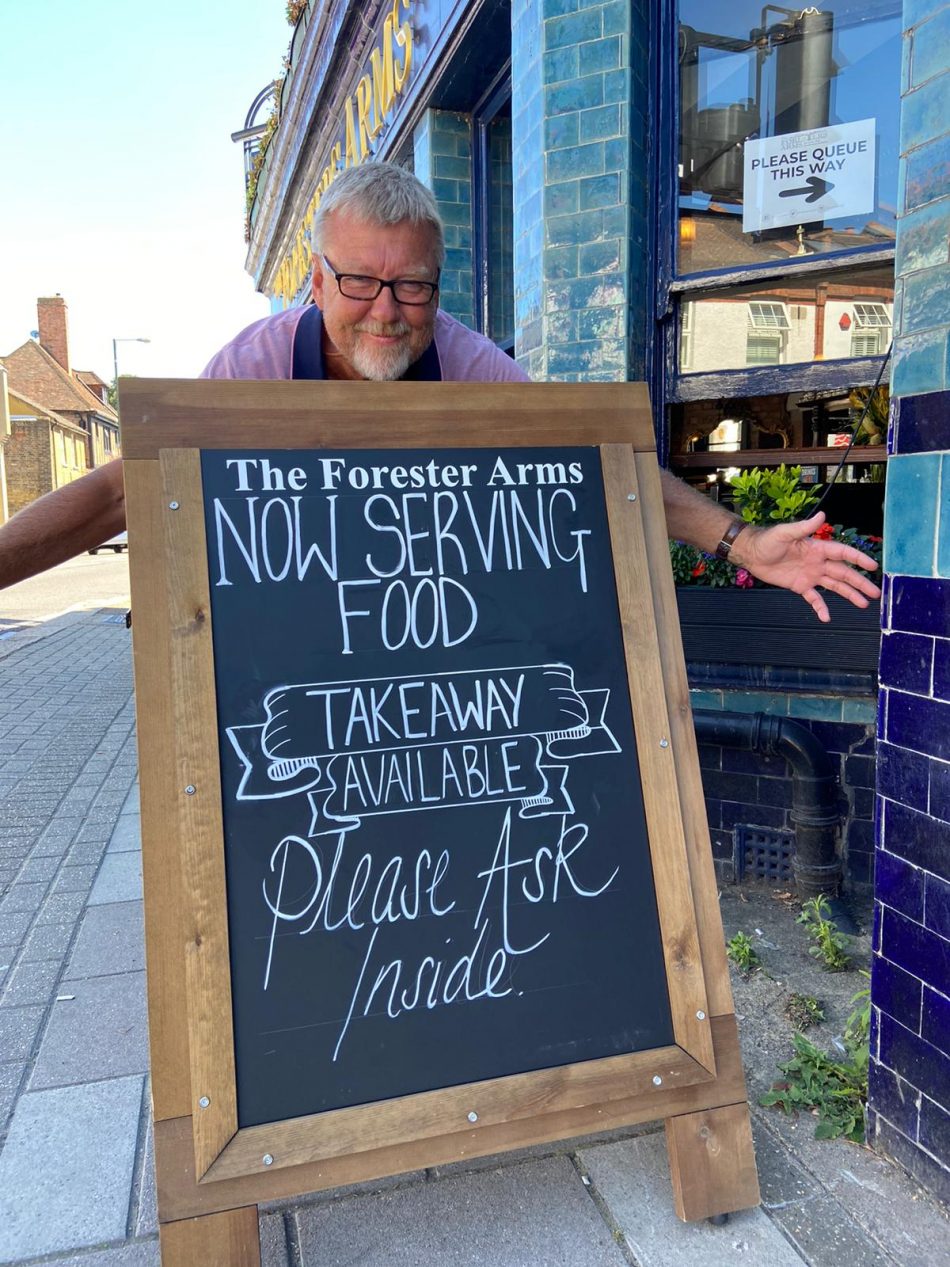 ARMS
PLEASE QUEUE
THIS WAY
The Forester Arms
NOW SERVING
FOOD
TAKEAWAY
AVAILABLE
Please Ask
Inside.